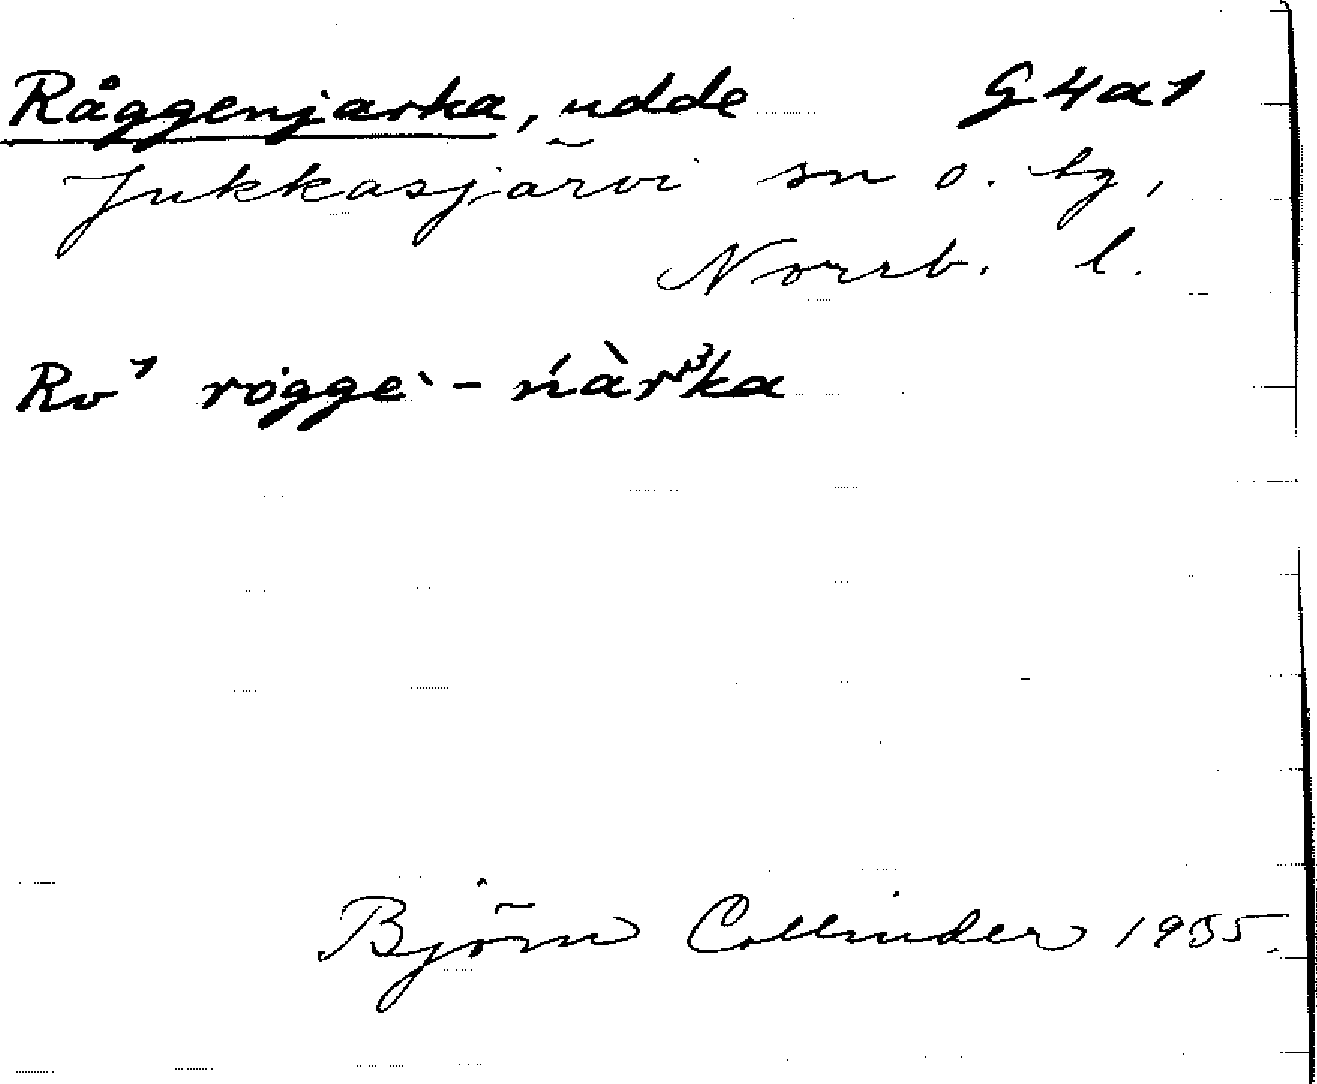 Råggenjarka, udde G4a1
Jukkasjärvi sn o. tg,
Norrb. l.
Rv¹ rogge` - ńàrᵌka
Björn Collinder 1935.